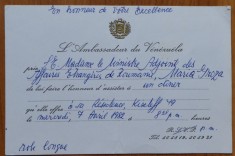 En honneur de Votre Excellence
L'Ambassadeur du Venezuela
prie S.E. Madame le Ministre Adjoint des
Affaires Etrangères de Roumanie, Maria Groza
de lui faire l'honneur d'assister à
un dîner
qui elle offre à sa Résidence, Kiseleff 49
le mercredi, 7 Avril 1982 à 8:30 p.m.
R.S.V.P.
robe longue